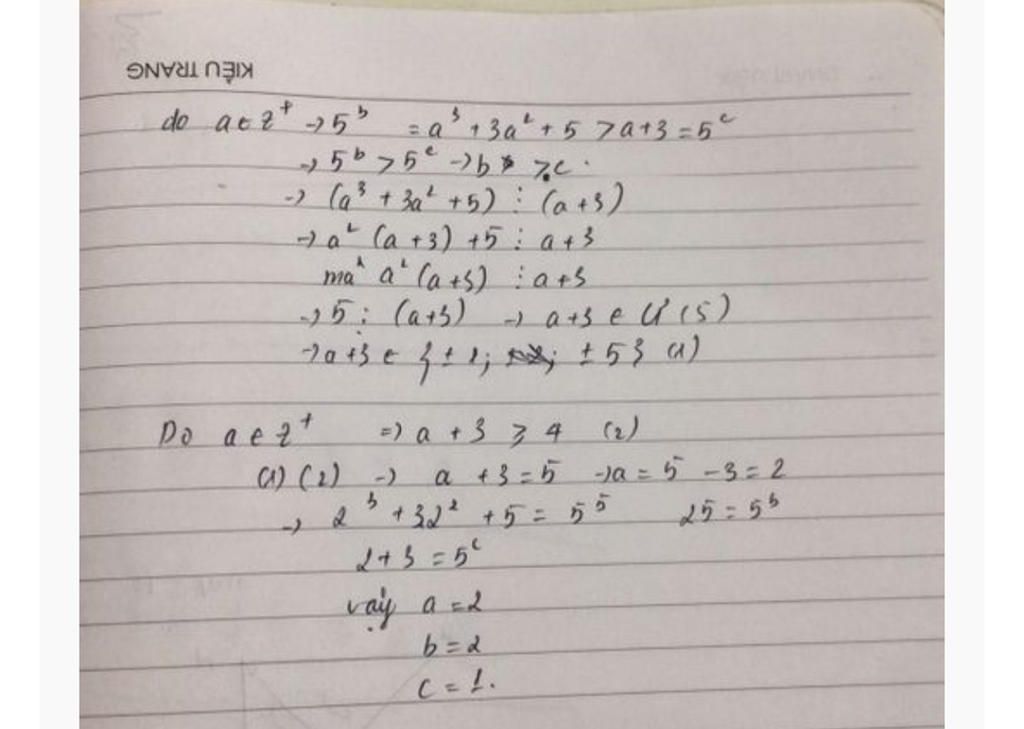 KIỀU TRANG
do a ∈ z⁺ → 5ᵇ = a³ + 3a² + 5 > a + 3 = 5ᶜ
→ 5ᵇ > 5ᶜ → b ⩾ c
→ (a³ + 3a² + 5) ⋮ (a + 3)
→ a² (a + 3) + 5 ⋮ a + 3
mà a² (a + 3) ⋮ a + 3
→ 5 ⋮ (a + 3) → a + 3 ∈ Ư (5)
→ a + 3 ∈ { ± 1; ± 5 } (1)
Do a ∈ z⁺ => a + 3 ⩾ 4 (2)
(1) (2) → a + 3 = 5 → a = 5 - 3 = 2
→ 2³ + 32² + 5 = 5⁵ 25 = 5ᵇ
2 + 3 = 5ᶜ
vậy a = 2
b = 2
c = 1.